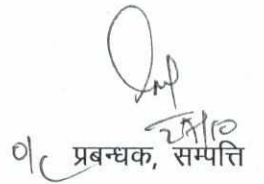 27/10
o/c प्रबन्धक, सम्पत्ति